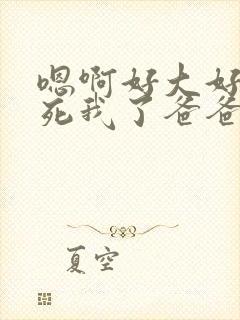 嗯啊好大好
死我了爸爸
夏空